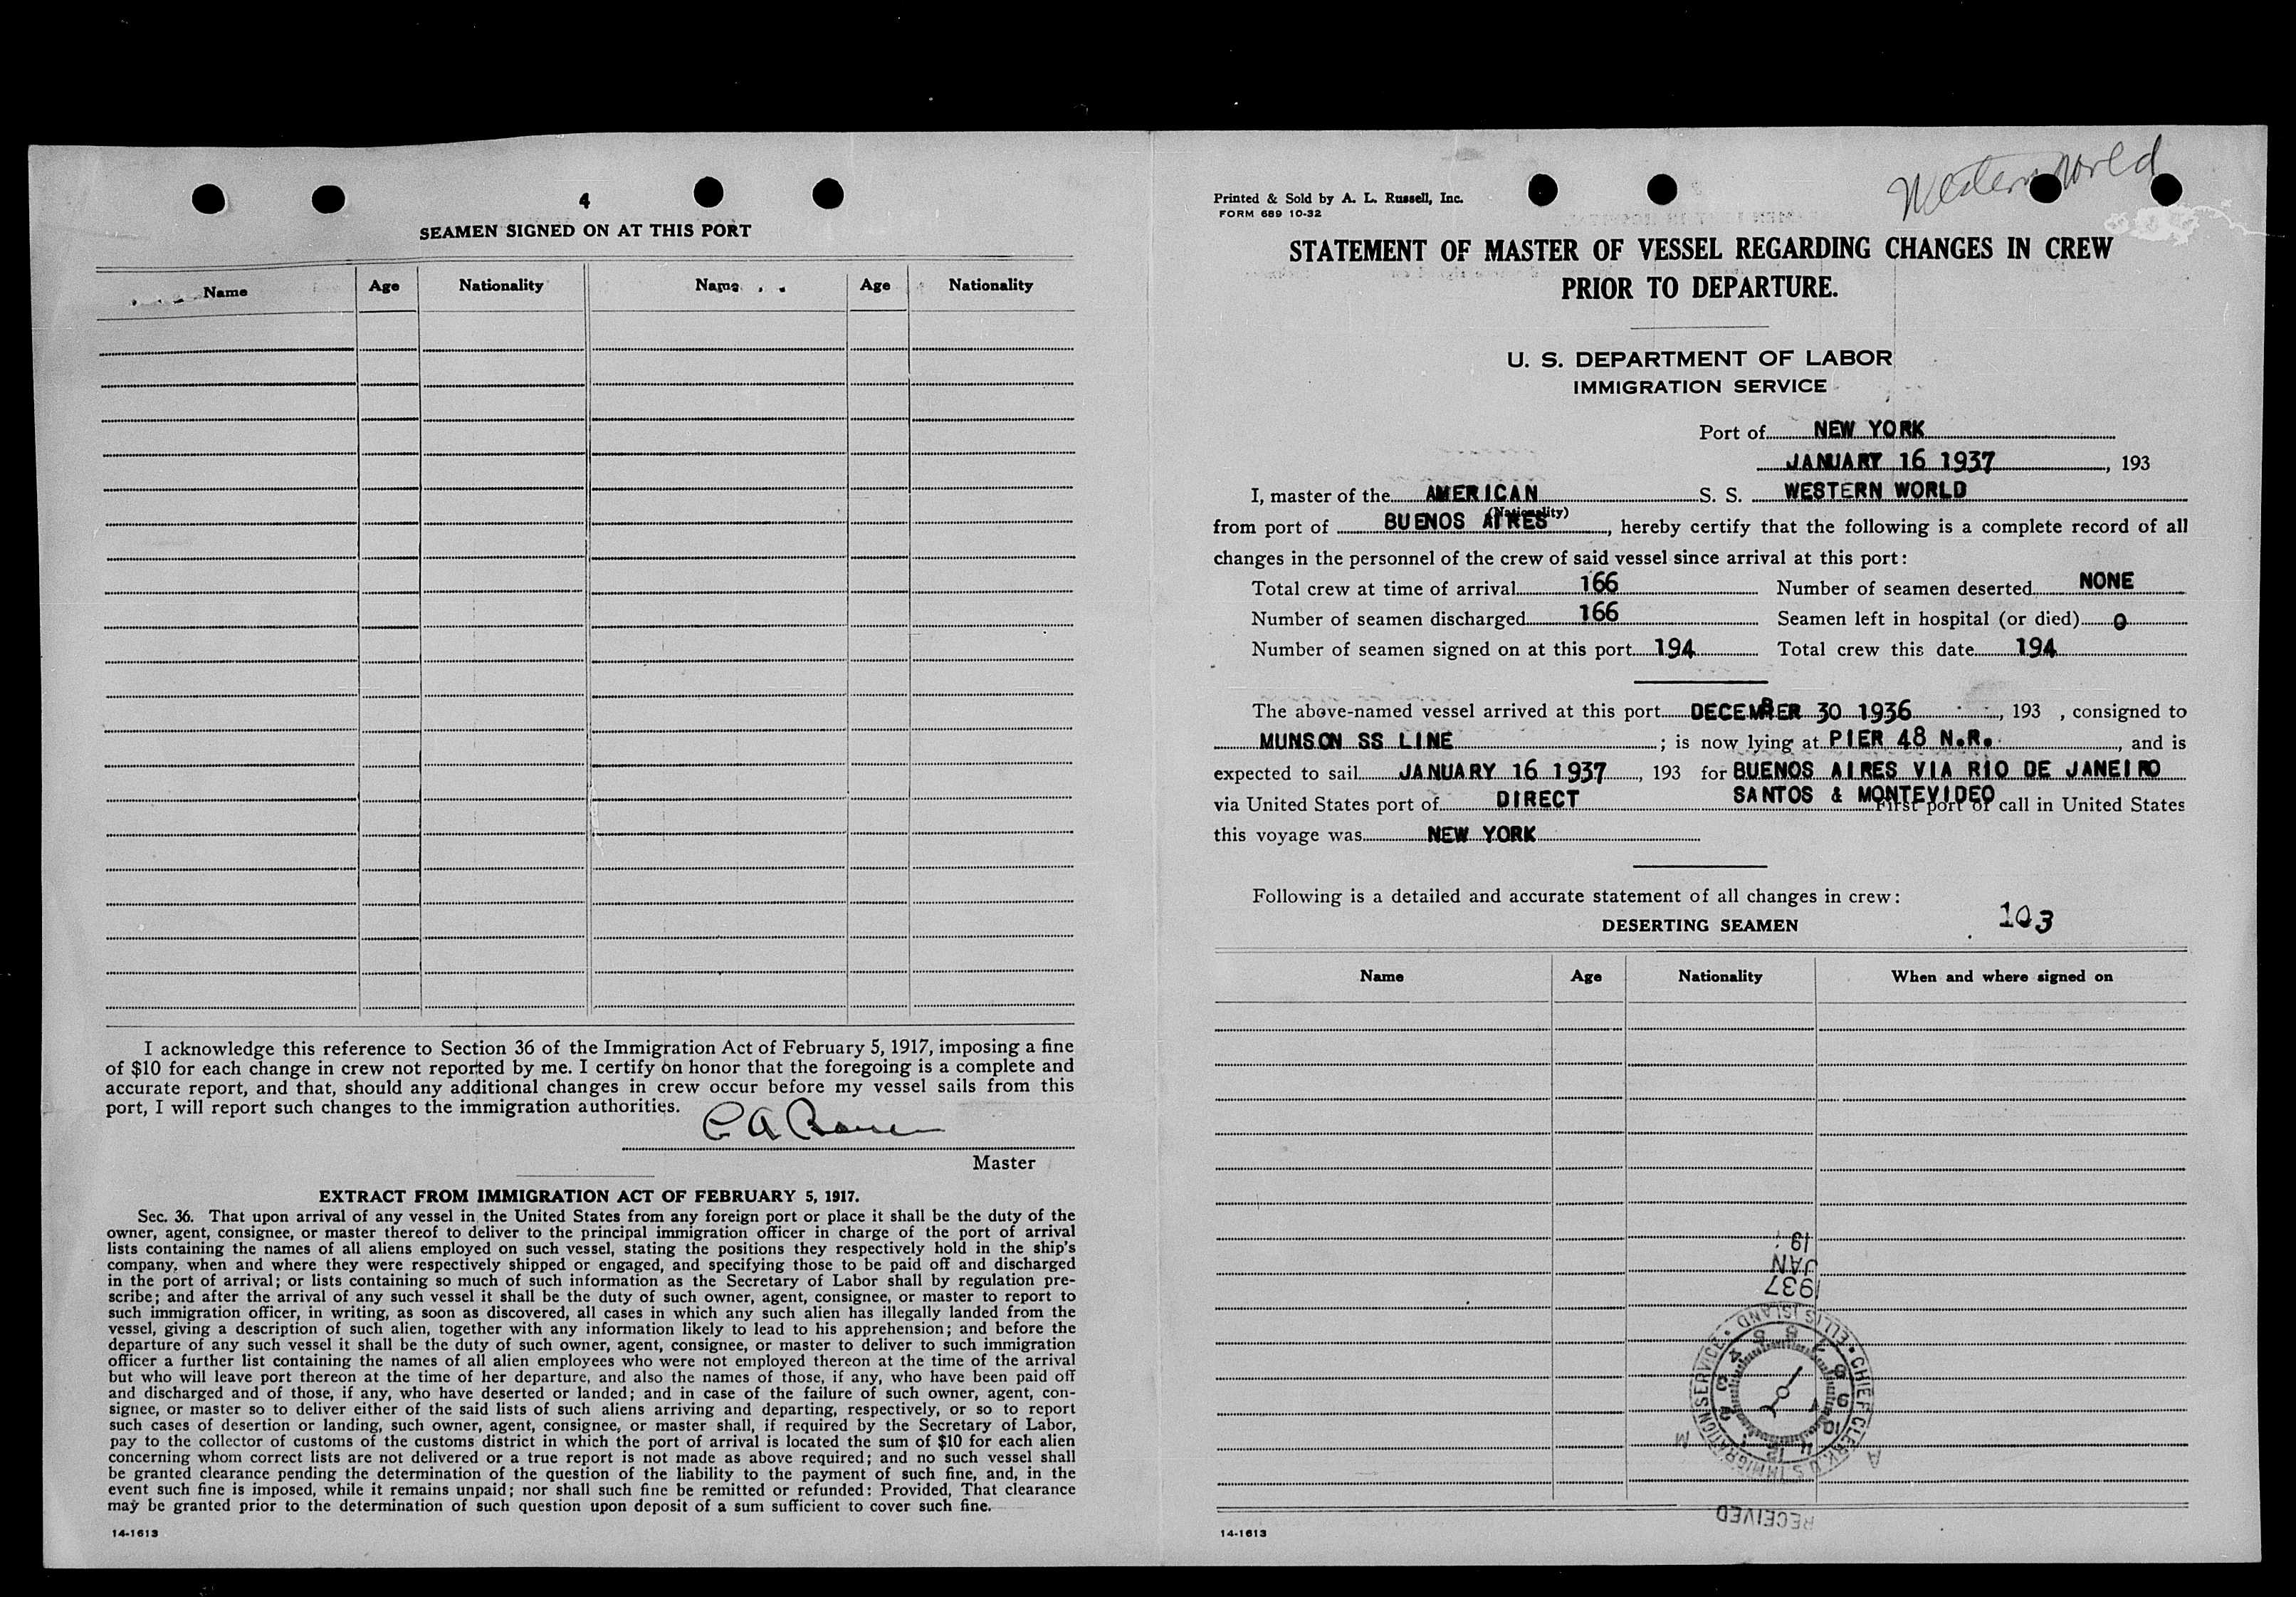 4
SEAMEN SIGNED ON AT THIS PORT
Name Age Nationality Name Age Nationality
I acknowledge this reference to Section 36 of the Immigration Act of February 5, 1917, imposing a fine
of $10 for each change in crew not reported by me. I certify on honor that the foregoing is a complete and
accurate report, and that, should any additional changes in crew occur before my vessel sails from this
port, I will report such changes to the immigration authorities.
Master
EXTRACT FROM IMMIGRATION ACT OF FEBRUARY 5, 1917.
Sec. 36. That upon arrival of any vessel in the United States from any foreign port or place it shall be the duty of the
owner, agent, consignee, or master thereof to deliver to the principal immigration officer in charge of the port of arrival
lists containing the names of all aliens employed on such vessel, stating the positions they respectively hold in the ship's
company, when and where they were respectively shipped or engaged, and specifying those to be paid off and discharged
in the port of arrival; or lists containing so much of such information as the Secretary of Labor shall by regulation pre-
scribe; and after the arrival of any such vessel it shall be the duty of such owner, agent, consignee, or master to report to
such immigration officer, in writing, as soon as discovered, all cases in which any such alien has illegally landed from the
vessel, giving a description of such alien, together with any information likely to lead to his apprehension; and before the
departure of any such vessel it shall be the duty of such owner, agent, consignee, or master to deliver to such immigration
officer a further list containing the names of all alien employees who were not employed thereon at the time of the arrival
but who will leave port thereon at the time of her departure, and also the names of those, if any, who have been paid off
and discharged and of those, if any, who have deserted or landed; and in case of the failure of such owner, agent, con-
signee, or master so to deliver either of the said lists of such aliens arriving and departing, respectively, or so to report
such cases of desertion or landing, such owner, agent, consignee, or master shall, if required by the Secretary of Labor,
pay to the collector of customs of the customs district in which the port of arrival is located the sum of $10 for each alien
concerning whom correct lists are not delivered or a true report is not made as above required; and no such vessel shall
be granted clearance pending the determination of the question of the liability to the payment of such fine, and, in the
event such fine is imposed, while it remains unpaid; nor shall such fine be remitted or refunded: Provided, That clearance
may be granted prior to the determination of such question upon deposit of a sum sufficient to cover such fine.
14-1613
Western World
Printed & Sold by A. L. Russell, Inc.
FORM 689 10-32
STATEMENT OF MASTER OF VESSEL REGARDING CHANGES IN CREW
PRIOR TO DEPARTURE.
U. S. DEPARTMENT OF LABOR
IMMIGRATION SERVICE
Port of NEW YORK
JANUARY 16 1937, 193
I, master of the AMERICAN S. S. WESTERN WORLD
(Nationality)
from port of BUENOS AIRES, hereby certify that the following is a complete record of all
changes in the personnel of the crew of said vessel since arrival at this port:
Total crew at time of arrival 166 Number of seamen deserted NONE
Number of seamen discharged 166 Seamen left in hospital (or died) 0
Number of seamen signed on at this port 194 Total crew this date 194
The above-named vessel arrived at this port DECEMBER 30 1936, 193 , consigned to
MUNSON SS LINE ; is now lying at PIER 48 N.R. , and is
expected to sail JANUARY 16 1937, 193 for BUENOS AIRES VIA RIO DE JANEIRO
SANTOS & MONTEVIDEO
via United States port of DIRECT First port of call in United States
this voyage was NEW YORK
Following is a detailed and accurate statement of all changes in crew:
DESERTING SEAMEN 103
Name Age Nationality When and where signed on
19
JAN
1937
ELLIS ISLAND • CHIEF CLERK U S IMMIGRATION SERVICE •
A M
RECEIVED
14-1613